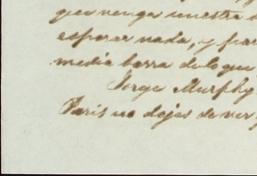 que venga nuestra
esperar nada, y
media barra de lo que
Jorge Murphy
Paris no dejes de ver